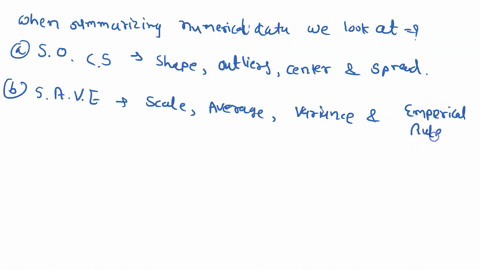 when summarizing numerical data we look at ⇒
(a) S.O. C.S → Shape, outliers, center & spread.
(b) S.A.V.E → Scale, Average, Variance & Emperical
Rule